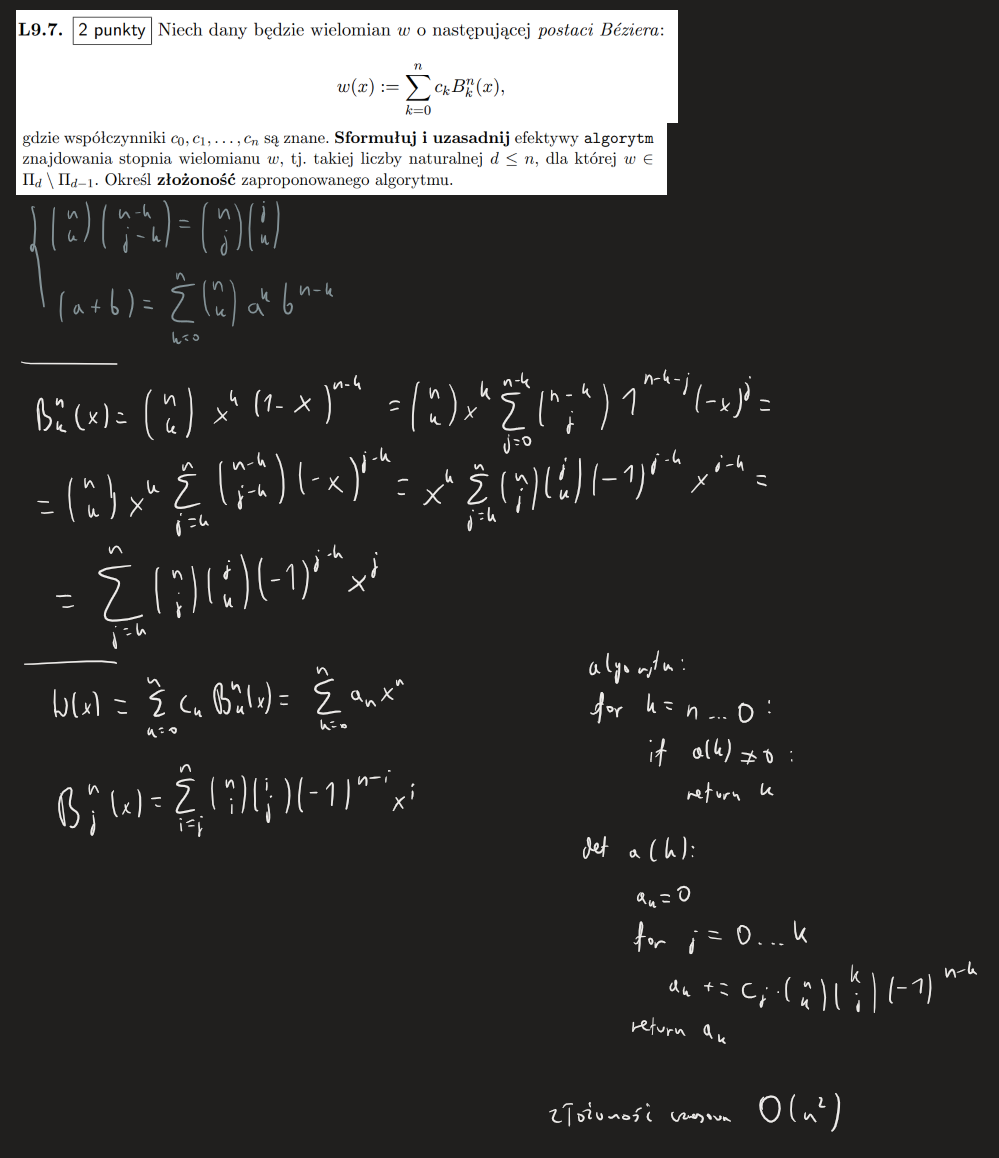 L9.7. 2 punkty Niech dany będzie wielomian w o następującej postaci Béziera:
w(x) := \sum_{k=0}^{n} c_k B_k^n(x),
gdzie współczynniki c_0, c_1, . . . , c_n są znane. Sformułuj i uzasadnij efektywy algorytm
znajdowania stopnia wielomianu w, tj. takiej liczby naturalnej d ≤ n, dla której w ∈
Π_d \ Π_{d−1}. Określ złożoność zaproponowanego algorytmu.
\binom{n}{k} \binom{n-k}{j-k} = \binom{n}{j} \binom{j}{k}
(a+b) = \sum_{k=0}^{n} \binom{n}{k} a^k b^{n-k}
B_k^n(x) = \binom{n}{k} x^k (1-x)^{n-k} = \binom{n}{k} x^k \sum_{j=0}^{n-k} \binom{n-k}{j} 1^{n-k-j} (-x)^j =
= \binom{n}{k} x^k \sum_{j=k}^{n} \binom{n-k}{j-k} (-x)^{j-k} = x^k \sum_{j=k}^{n} \binom{n}{j} \binom{j}{k} (-1)^{j-k} x^{j-k} =
= \sum_{j=k}^{n} \binom{n}{j} \binom{j}{k} (-1)^{j-k} x^j
W(x) = \sum_{k=0}^{n} c_k B_k^n(x) = \sum_{k=0}^{n} a_n x^n
B_j^n(x) = \sum_{i=j}^{n} \binom{n}{i} \binom{i}{j} (-1)^{n-i} x^i
algorytm:
for k = n ... 0 :
if a(k) ≠ 0 :
return k
def a(k):
a_k = 0
for j = 0 ... k
a_k += c_j · \binom{n}{k} \binom{k}{j} (-1)^{n-k}
return a_k
złożoność czasowa O(n^2)